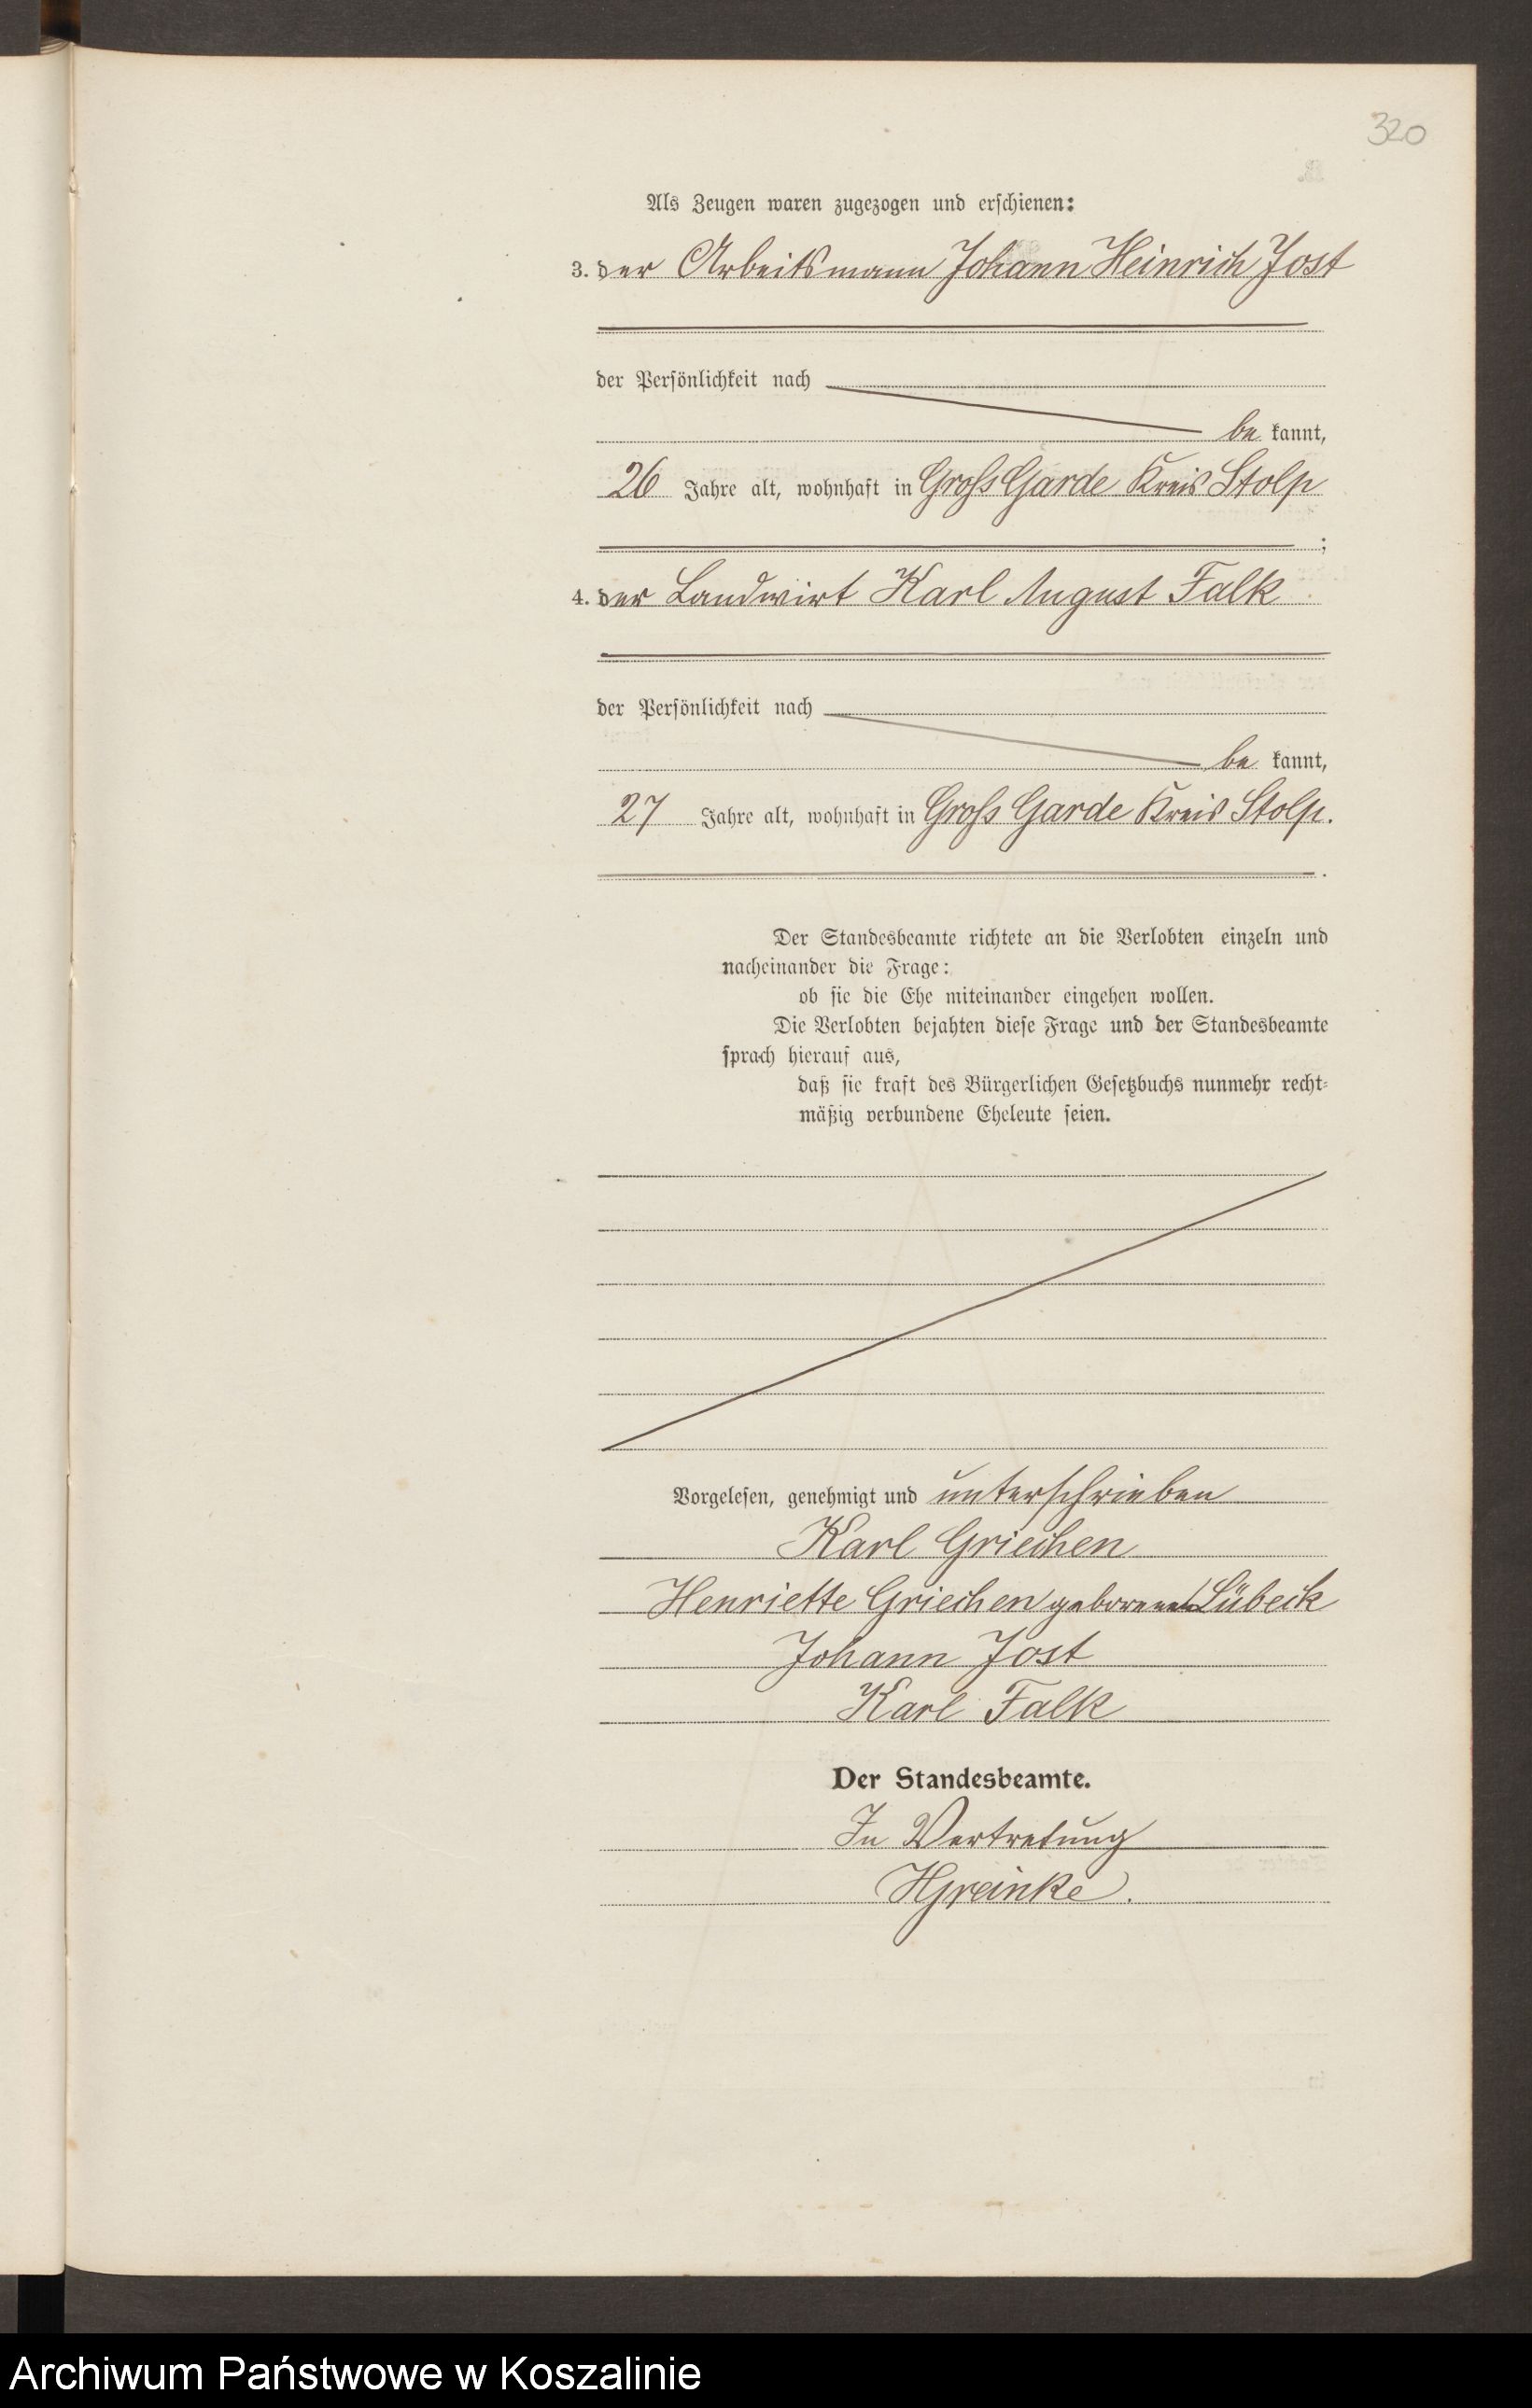 320
Als Zeugen waren zugezogen und erschienen:
3. der Arbeitsmann Johann Heinrich Jost
der Persönlichkeit nach
be kannt,
26 Jahre alt, wohnhaft in Groß Garde Kreis Stolp
;
4. der Landwirt Karl August Falk
der Persönlichkeit nach
be kannt,
27 Jahre alt, wohnhaft in Groß Garde Kreis Stolp.
.
Der Standesbeamte richtete an die Verlobten einzeln und
nacheinander die Frage:
ob sie die Ehe miteinander eingehen wollen.
Die Verlobten bejahten diese Frage und der Standesbeamte
sprach hierauf aus,
daß sie kraft des Bürgerlichen Gesetzbuchs nunmehr recht-
mäßig verbundene Eheleute seien.
Vorgelesen, genehmigt und unterschrieben
Karl Griechen
Henriette Griechen geborene Lübeck
Johann Jost
Karl Falk
Der Standesbeamte.
In Vertretung
Archiwum Państwowe w Koszalinie